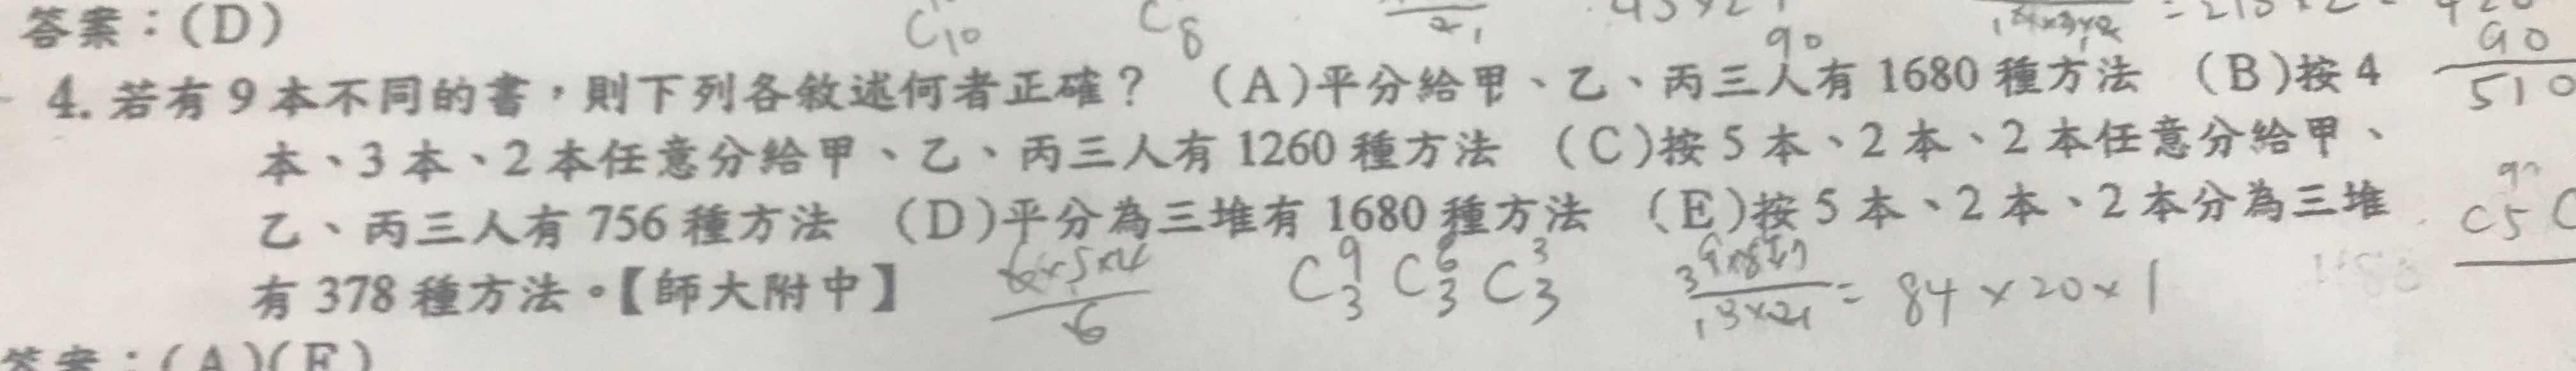 答案：(D)
C10 C8 2 1
90
90
4. 若有 9 本不同的書，則下列各敘述何者正確？ (A)平分給甲、乙、丙三人有 1680 種方法 (B)按 4
510
本、3 本、2 本任意分給甲、乙、丙三人有 1260 種方法 (C)按 5 本、2 本、2 本任意分給甲、
乙、丙三人有 756 種方法 (D)平分為三堆有 1680 種方法 (E)按 5 本、2 本、2 本分為三堆
C5 C
有 378 種方法。【師大附中】
6×5×4 / 6
C⁹₃ C⁶₃ C³₃
9×8×7 / 3×2 = 84 × 20 × 1
答案：(A)(E)